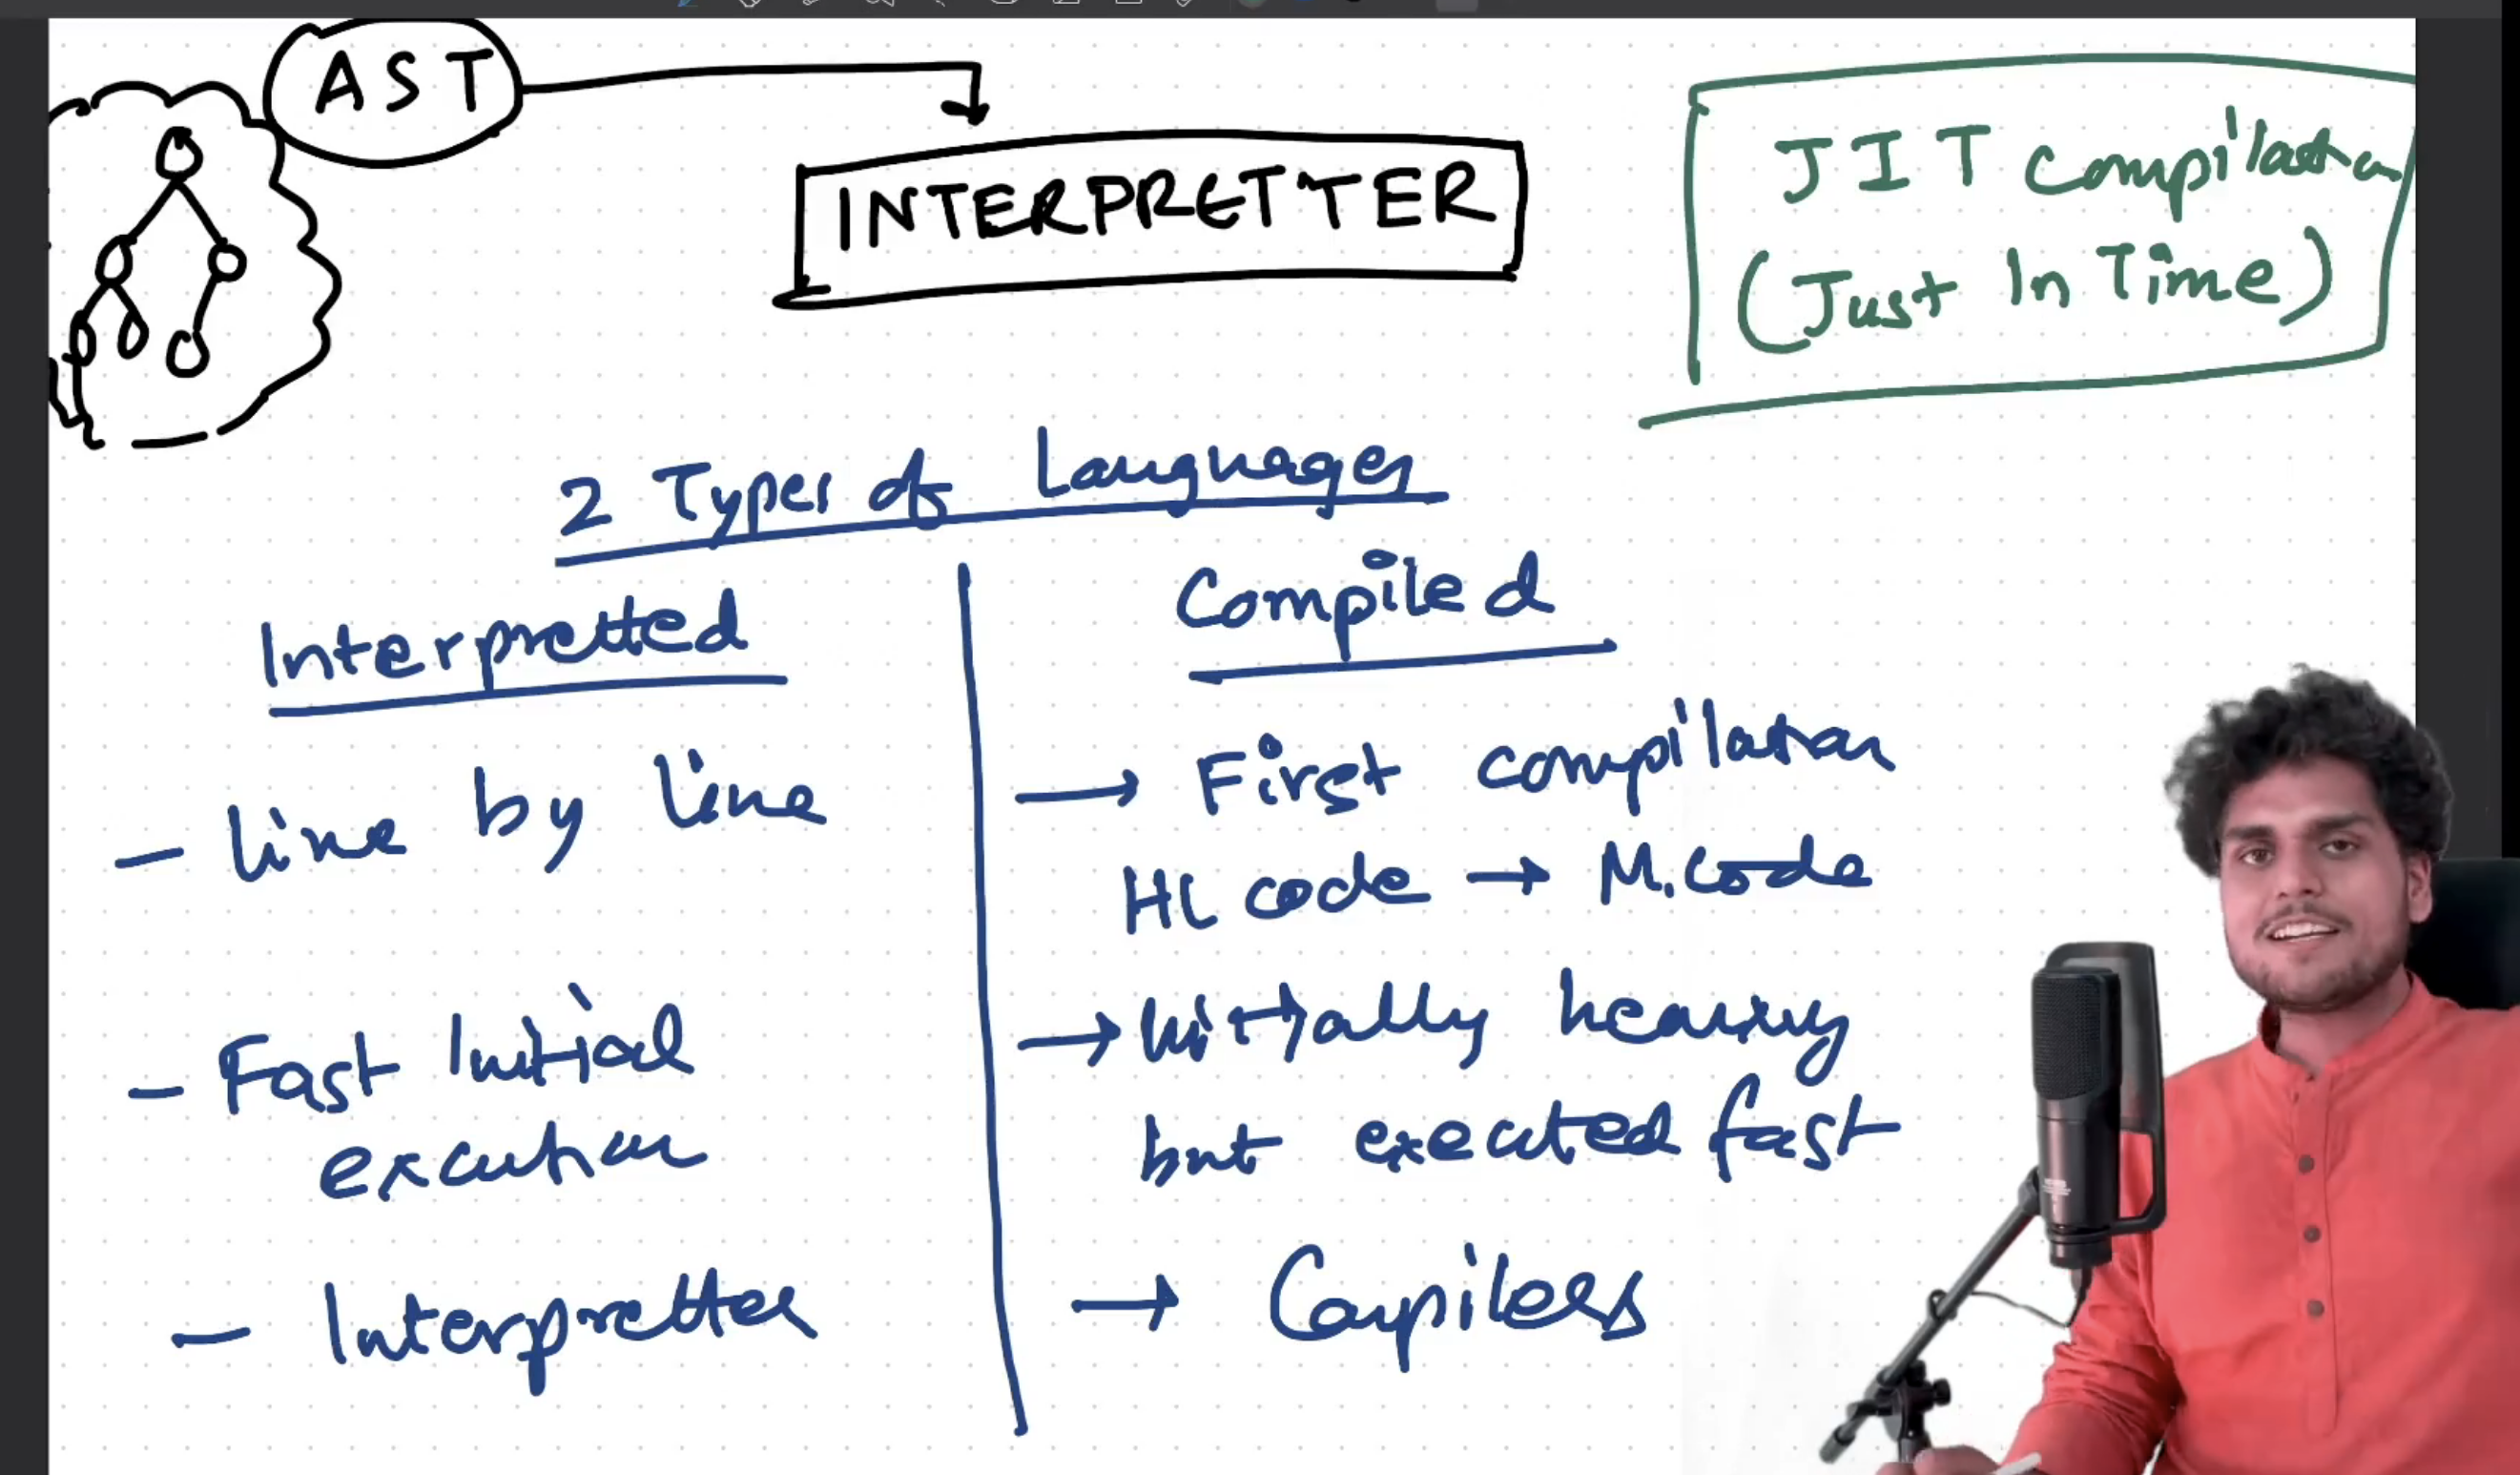 AST
INTERPRETTER
JIT compilation
(Just In Time)
2 Types of Languages
Interpretted
- line by line
- Fast Initial
execution
- Interpretter
Compiled
→ First compilation
HL code → M.code
→ Initially heavy
but executed fast
→ Compilers